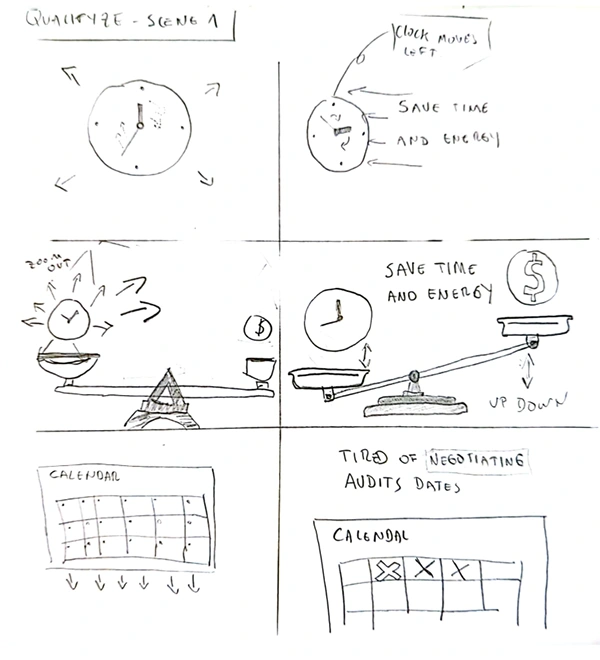 QUALITYZE - SCENE 1
CLOCK MOVES
LEFT
SAVE TIME
AND ENERGY
ZOOM
OUT
$
SAVE TIME
AND ENERGY
$
UP DOWN
CALENDAR
TIRED OF NEGOTIATING
AUDITS DATES
CALENDAR